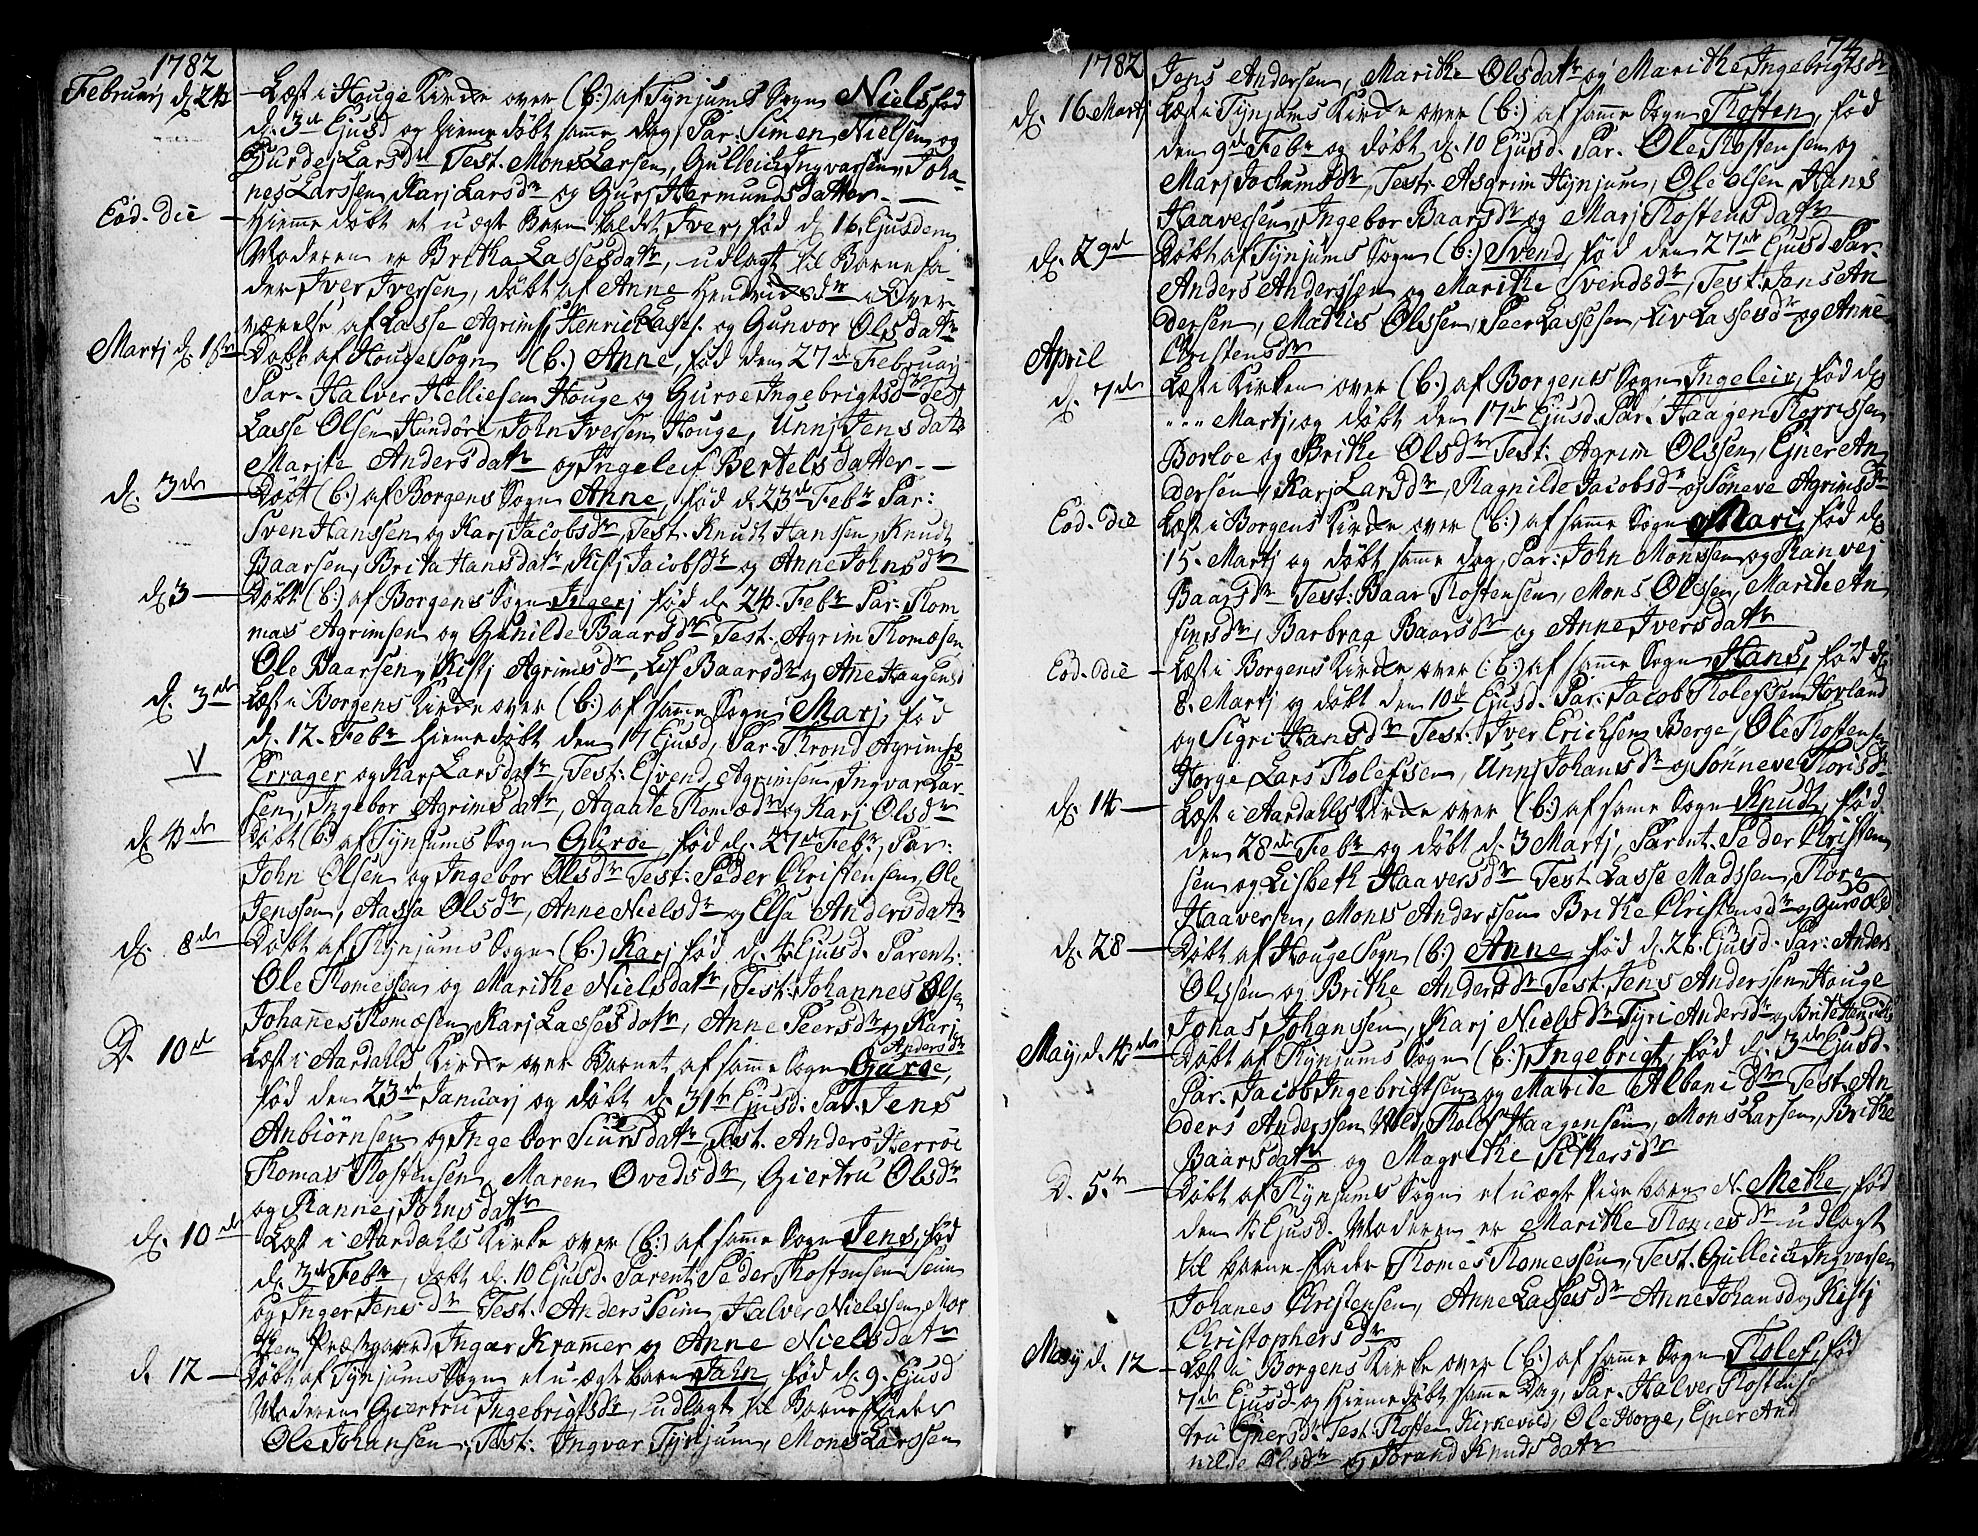 1782
Februarj d. 24 Læst i Houge Kirche over (b:) af Tynjums Sogn Niels, fød
d. 3de Ejusd og hiemmedøbt samme dag, Par: Simen Nielsen og
Gurdej Larsdr Test. Mons Larsen, Gulleich Ingvarsen, Joha-
nes Larssen, Karj Larsdr og Gurj Hermundsdatter. -
Eod. die - Hiemmedøbt et uægte Barn kaldt Iver, fød d. 16 Ejusdem
Moderen er Britha Lassesdatr, udlagt til Barnefa-
der Iver Iversen, døbt af Anne Hendrichsdr i Over
værelse af Lasse Agrims, Henrich Lasses. og Gunvor Olsdatr
Martj d. 1ste Døbt af Houge Sogn (b:) Anne, fød den 27de Februarj
Par. Halver Helliesen Houge og Guroe Ingebrigtsdr Test
Lasse Olsen Hundøre, John Iversen Houge, Unnj Jensdatr
Marjte Andersdatr og Ingeleif Bertelsdatter. -
d. 3de Døbt (b:) af Borgens Sogn Anne, fød d. 23de Febr Par:
Sven Hanssen og Karj Jacobsdr, Test. Knudt Hanssen, Knudt
Baarsen, Brita Hansdatr, Kistj Jacobsdr og Anne Johnsdr
d. 3 - Døbt (b:) af Borgens Sogn Ingerj fød d. 24. Febr Par: Thom
mas Agrimsen og Gunilde Baarsdr Test. Agrim Thomæsen
Ole Baarsen, Kistj Agrimsdr, Lif Baarsdr og Anne Haagensd
d. 3de Læst i Borgens Kirche over (b:) af samme Sogn Marj, fød
d. 12. Febr hiemedøbt den 17 Ejusd, Par. Trond Agrims:
V Errager og Karj Larsdatr, Test: Ejvend Agrimsen, Ingvar Lar-
sen, Ingebor Agrimsdatr, Agaate Thomædr og Karj Olsdr
d. 4de Døbt (b:) af Tynjums Sogn Guroe, fød d. 27de Febr, Par:
John Olsen og Ingebor Olsdr Test: Peder Christensen, Ole
Jenssen, Aassa Olsdr, Anne Nielsdr og Elsa Andersdatr
d. 8de Døbt af Thynjums Sogn (b:) Karj fød d. 4 Ejusd. Parent:
Ole Thomessen og Marithe Nielsdatr, Test: Johannes Olsen
Johanes Thomæsen, Karj Lassesdatr, Anne Peersdr og Karj
Andersdr
D. 10de Læst i Aardahls Kirche over Barnet af samme Sogn Guroe,
fød den 23de Januarj og døbt d. 31te Ejusd. Par. Jens
Anbiörnsen og Ingebor Siursdatr Test. Anders
Thomas Thostensen, Maren Ovedsdr, Giertru Olsdr
og Rannej Johnsdatr
d. 10de Læst i Aardahls Kirke over (b:) af samme Sogn Jens, fød
d. 3de Febr, døbt d. 10 Ejusd. Parent Peder Thostensen Seim
og Inger Jensdr Test. Anders Seim, Halver Nielssen, Mor
then Præstgaard, Ingar Kramer og Anne Nielsdatr
d. 12 - Døbt af Tynjums Sogn et uægt barn Jahn, fød d. 9. Ejusd
Moderen Giertru Ingebrigtsdr, udlagt til Barnefader
Ole Johansen, Test: Ingvar Tynjum, Mons Larssen
1782 74
Jens Andersen, Marithe Olsdatr og Marithe Ingebrigtsdr
d. 16 Martj Læst i Tynjums Kirche over (b:) af samme Sogn Thosten, fød
den 9de Febr og døbt d. 10 Ejusd. Par. Ole Thostensen og
Marj Jochumsdr, Test. Asgrim Hynjum, Ole Olsen, Hans
Haaversen, Ingebor Baarsdr og Marj Thostensdatr
d. 29de Døbt af Tynjums Sogn (b:) Svend, fød den 27de Ejusd Par.
Anders Anderssen og Marithe Svendsdr, Test: Jens An
dersen, Mathis Olssen, Peer Lassesen, Liv Lassesdr og Anne
Christensdr
April
d. 7de Læst i Kirken over (b:) af Borgens Sogn Ingeleiv, fød d.
... Martj, og døbt den 17de Ejusd. Par. Haagen Thorrissen
Borloe og Brithe Olsdr Test: Agrim Olssen, Ejner An
dersen, Karj Larsdr, Ragnilde Jacobsdr og Söneve Agrimsdr
Eod. die Læst i Borgens Kirche over (b:) af samme Sogn Mari, fød d.
15. Martj og døbt samme dag, Par: John Monssen og Ranvej
Baarsdr Test: Baar Thostensen, Mons Olssen, Marithe An
finsdr, Barbraa Baarsdr og Anne Iversdatr
Eod. die - Læst i Borgens Kirche over (b:) af samme Sogn Hans, fød d.
8. Martj og døbt den 10de Ejusd. Par: Jacob Tholefsen Hovland
og Sigri Hansdr Test: Iver Erichsen Berge, Ole Thostensen
Horge, Lars Tholefsen, Unnj Johansdr og Sönneve Thorisdr
d. 14 - Læst i Aardahls Kirche over (b:) af same Sogn Knudt, fød
den 28de Febr og døbt d. 3 Martj, Parent. Peder Christen
sen og Lisbeth Haaversdr Test Lasse Madssen, Thore
Haaversen, Mons Anderssen Brithe Christensdr og Guro Olsd
d. 28 - Døbt af Houge Sogn (b:) Anne fød d. 26 Ejusd. Par: Anders
Olssen og Brithe Andersdr Test. Jens Anderssen Houge
Jonas Johanssen, Karj Nielsdr Tyri Andersdr og Brite Henrichs
May, d. 4de Døbt af Thynjums Sogn (b:) Ingebrigt, fød d. 3de Ejusd.
Par. Jacob Ingebrigtsen og Marithe Albanidr Test. An
ders Anderssen Wed, Tholef Haagensen, Mons Larsen, Brithe
Baarsdatr og Magrethe Sitkersdr
D. 5te - Døbt af Thynjums Sogn et uægt Pige barn N. Methe, fød
den 4 Ejusd. Moderen er Marithe Thomesdr udlagt
til barne-fader Thomes Thomessen, Test. Gulleich Ingvarsen
Johanes Christensen, Anne Lassesdr Anne Johansd og Kistj
Christophersdr
May d. 12 - Læst i Borgens Kirke over (b:) af samme Sogn Tholef, fød
7de Ejusd og hiemmedøbt samme Dag, Par. Halver Thostens
tru Ejnersdr Test. Thosten Kirkevold, Ole Horge, Ejner And
nilde Olsdr og Torand Knudsdatr